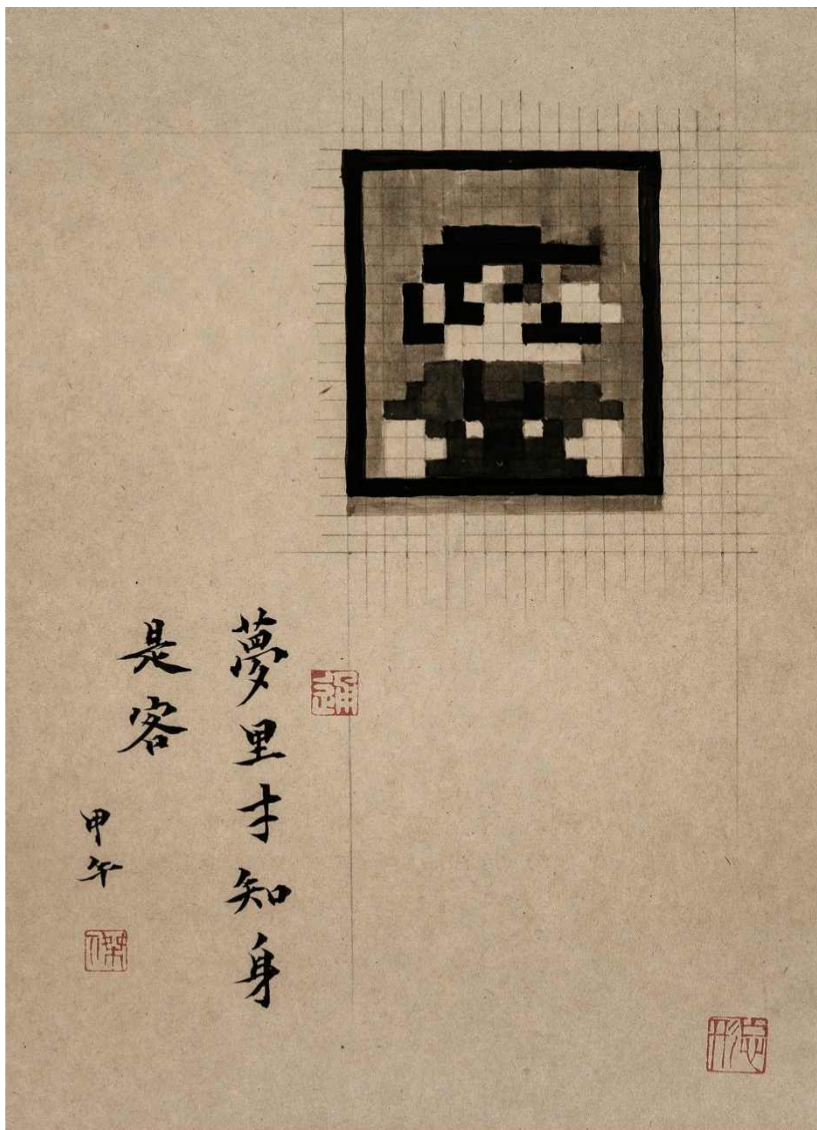 夢里才知身
是客
甲午